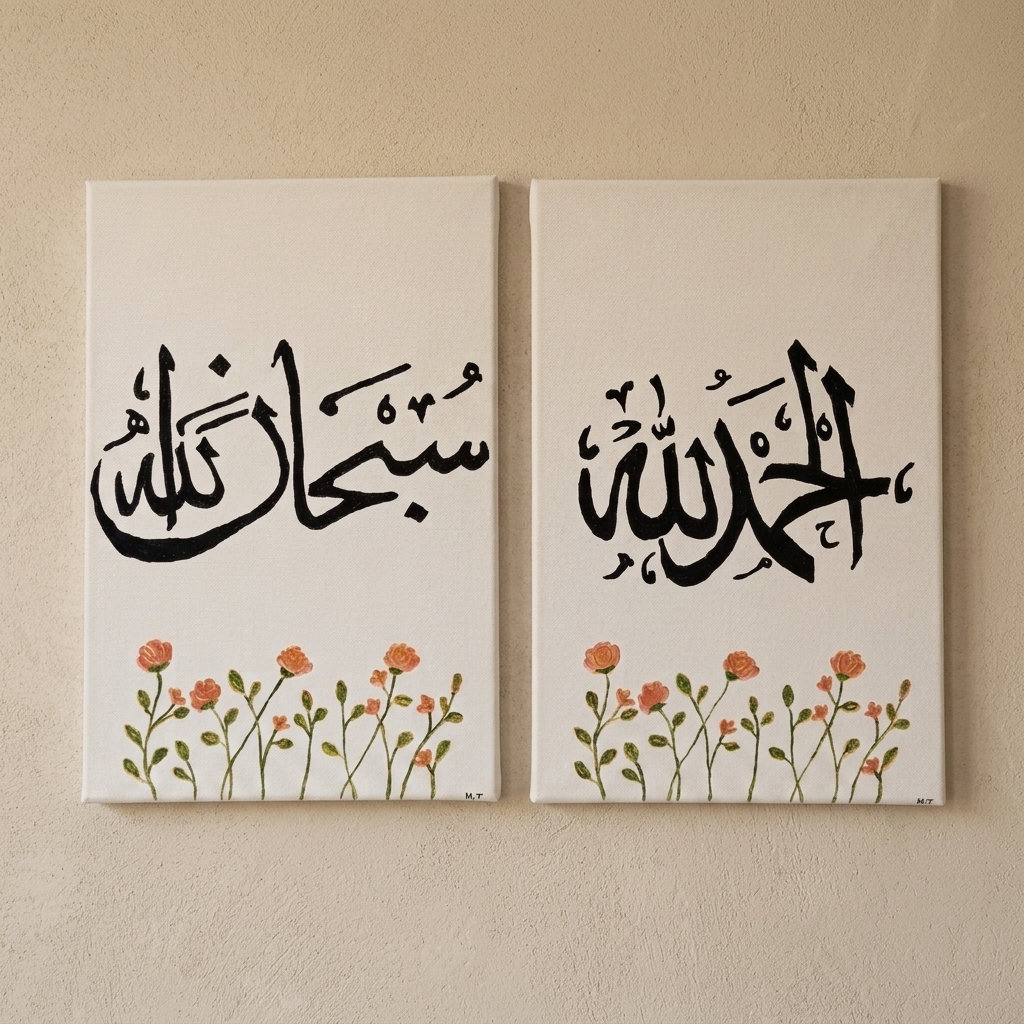 سُبْحَانَ اللّٰهِ
M.T
الْحَمْدُ لِلّٰهِ
M.T